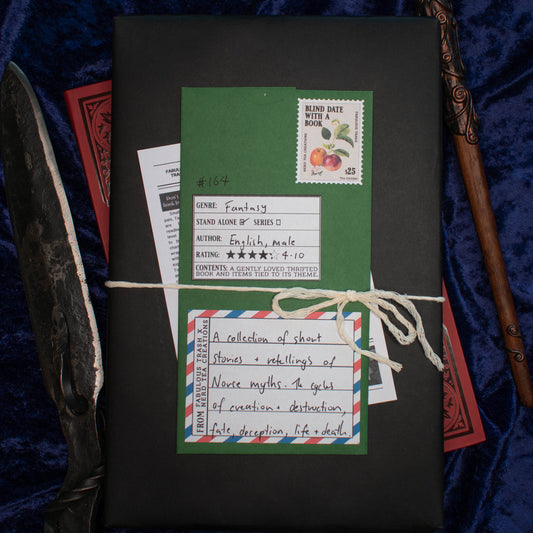 BLIND DATE
WITH A
BOOK
FABULOUS TRASH
NERD TEA CREATIONS
$25
#164
GENRE: Fantasy
STAND ALONE ☑ SERIES ☐
AUTHOR: English, male
RATING: ★★★★☆ 4.10
CONTENTS: A GENTLY LOVED THRIFTED
BOOK AND ITEMS TIED TO ITS THEME.
FROM FABULOUS TRASH X
NERD TEA CREATIONS
A collection of short
stories + retellings of
Norse myths. The cycles
of creation + destruction,
fate, deception, life + death
FABUL
TRA
Don't
book b